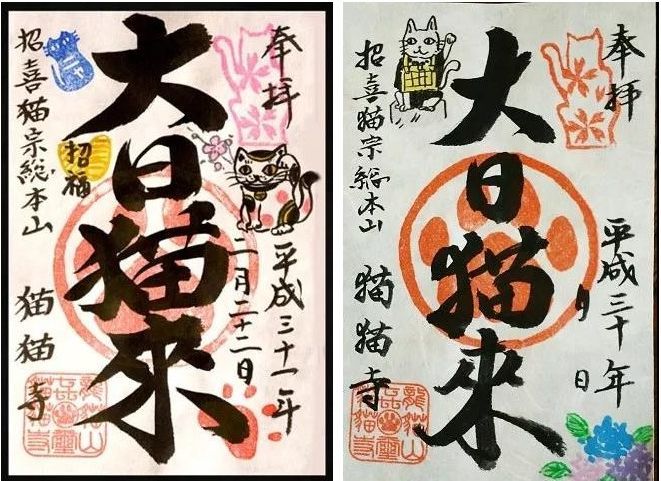 奉拝
平成三十一年
二月二十二日
大日猫來
招福
招喜猫宗総本山
猫猫寺
龍猫山
猫猫寺
奉拝
平成三十年
月 日
大日猫來
招喜猫宗総本山
猫猫寺
龍猫山
猫猫寺